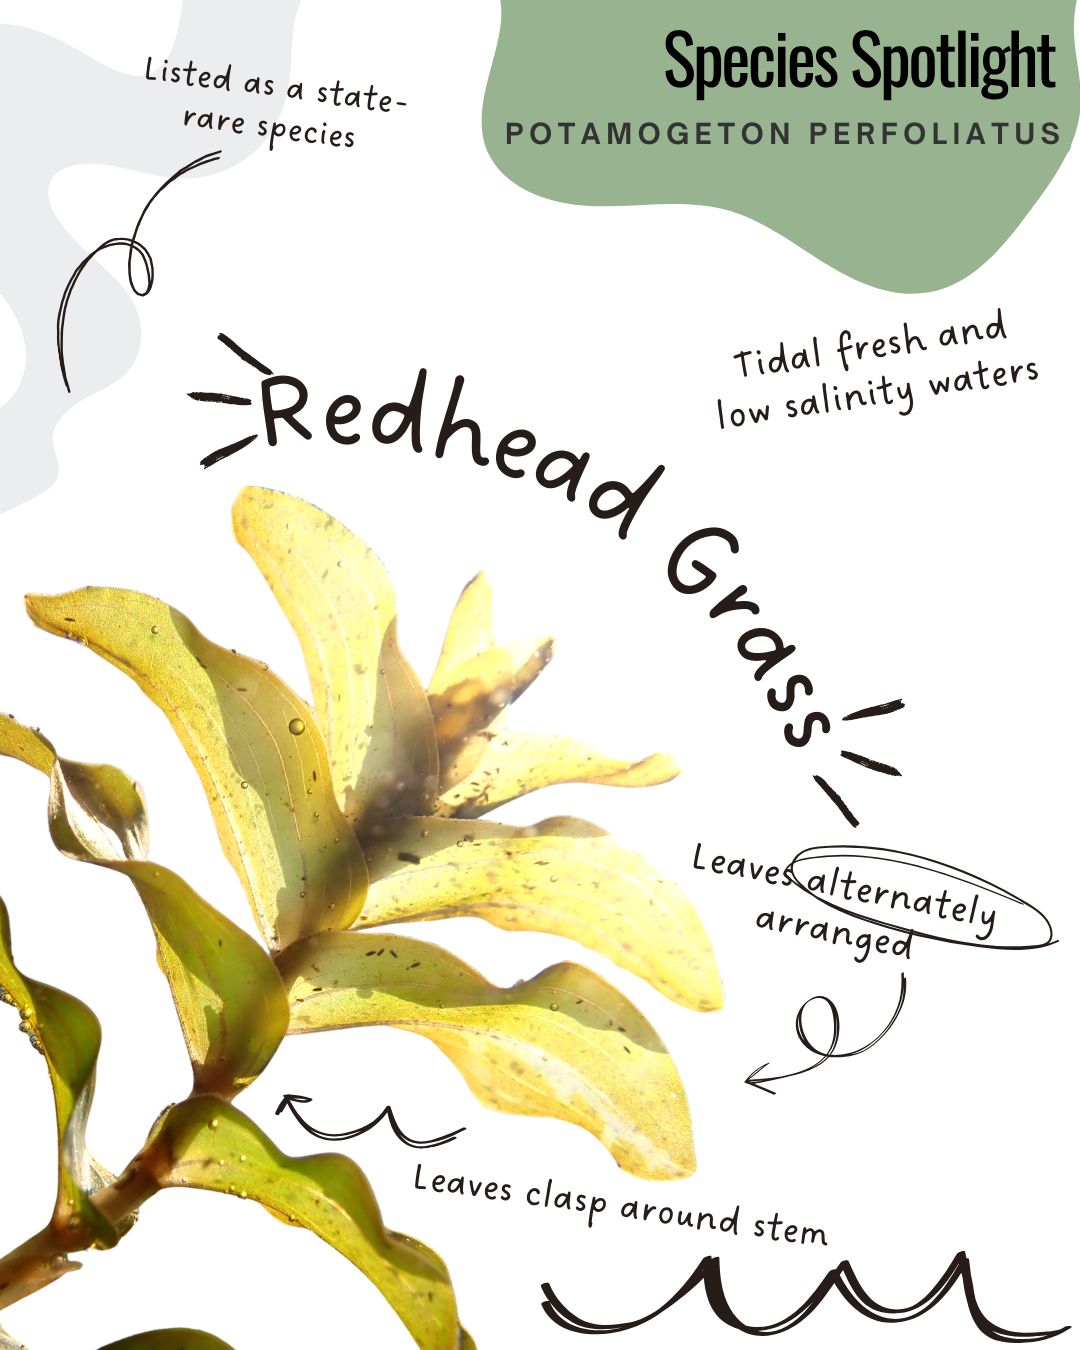 Species Spotlight
POTAMOGETON PERFOLIATUS
Listed as a state-
rare species
Tidal fresh and
low salinity waters
Redhead Grass
Leaves alternately
arranged
Leaves clasp around stem